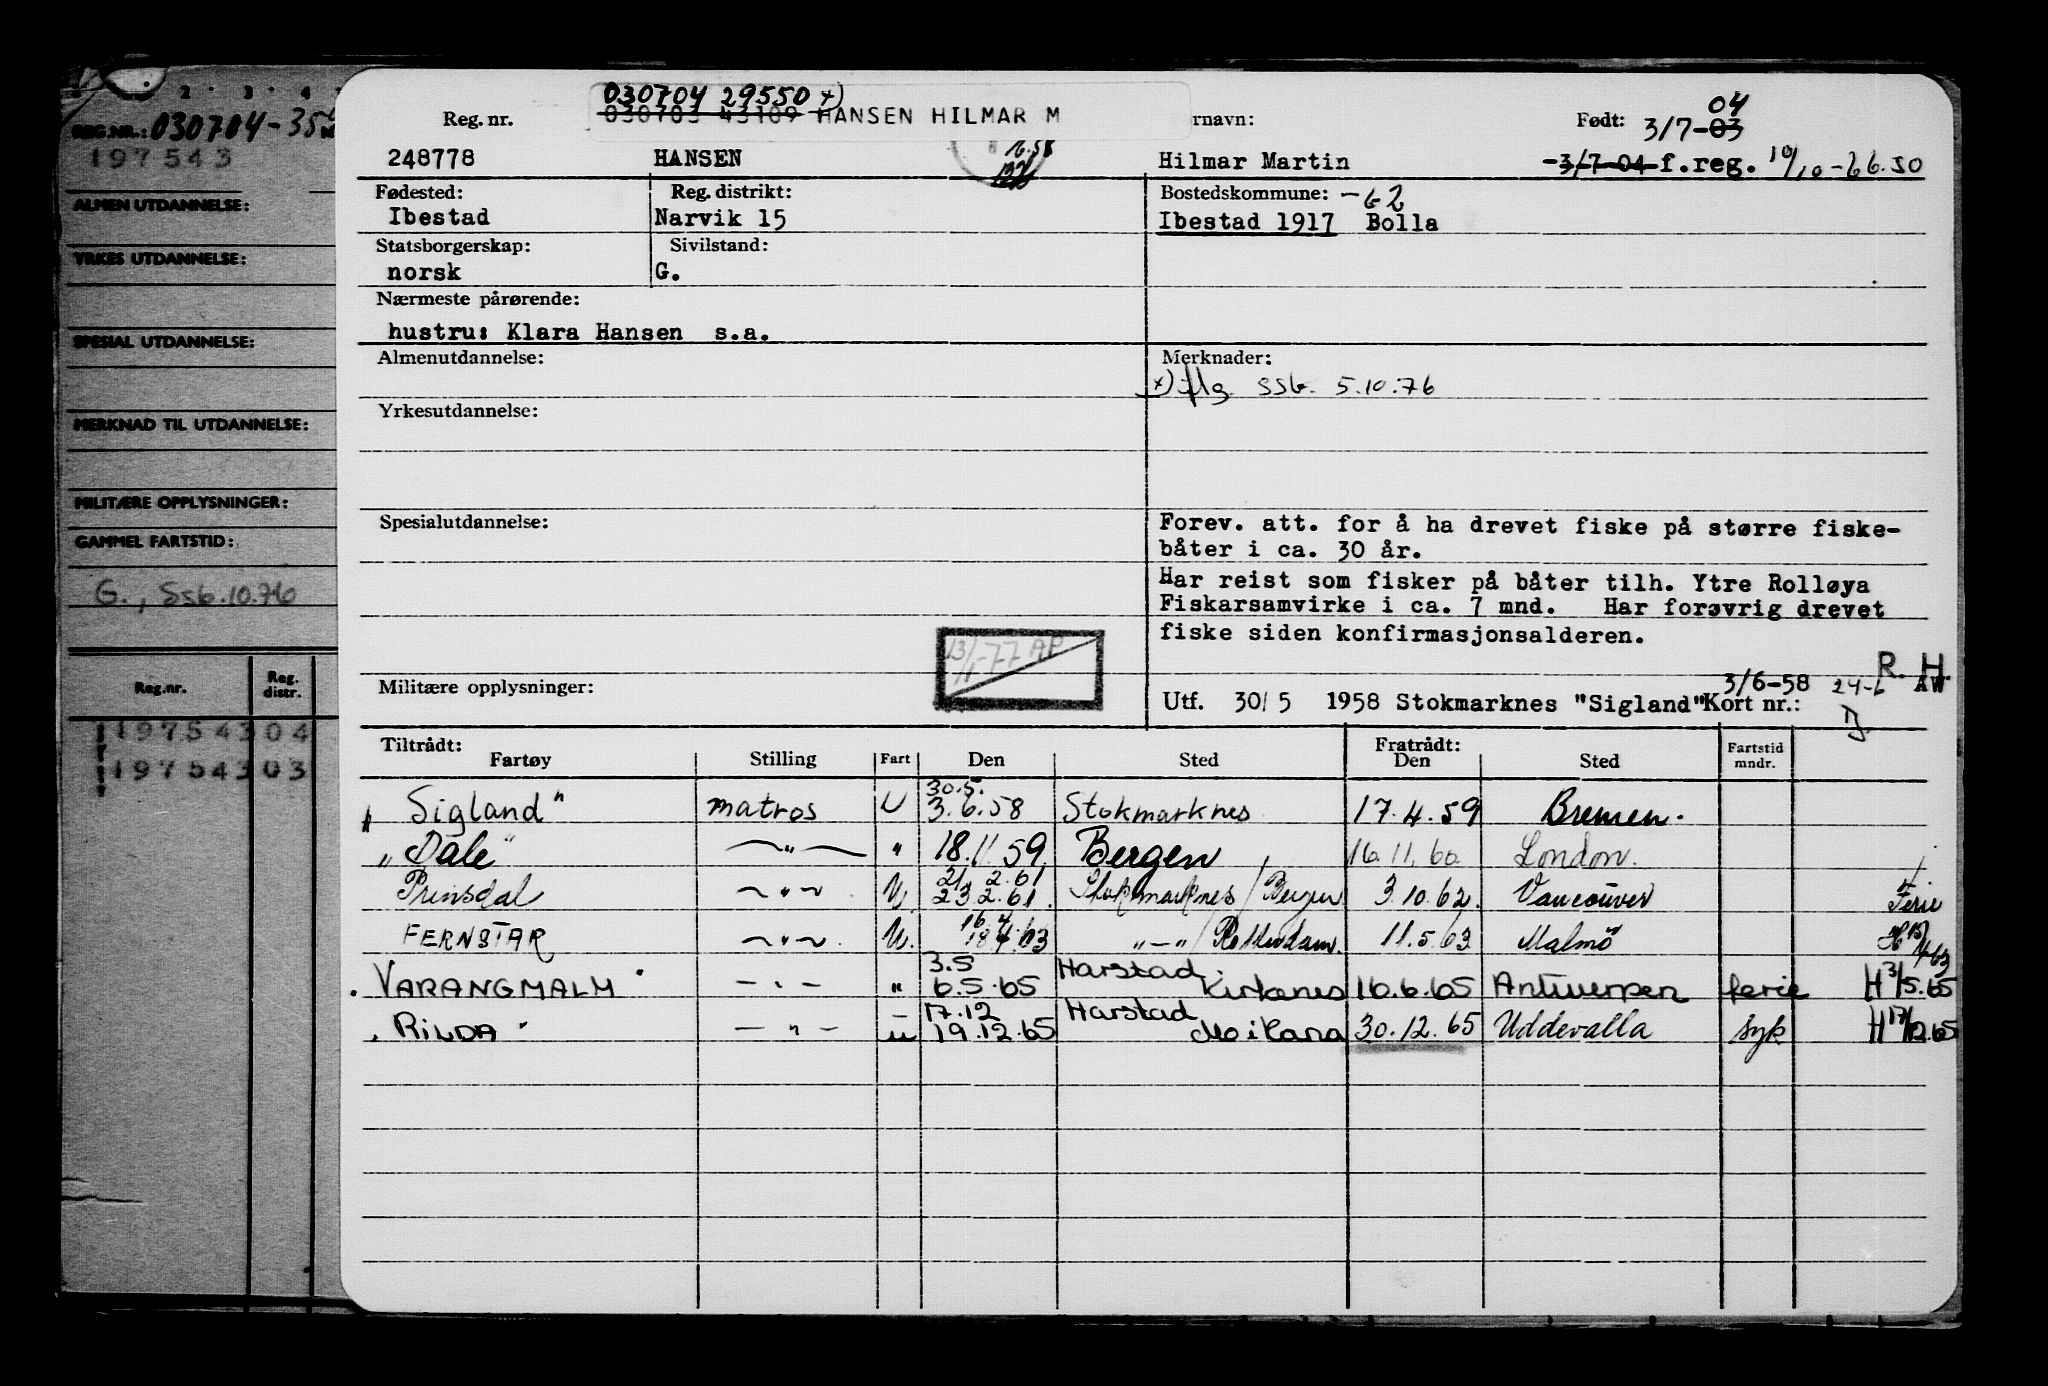 2 3 4
REG.NR.: 030704-35
197543
ALMEN UTDANNELSE:
YRKES UTDANNELSE:
SPESIAL UTDANNELSE:
MERKNAD TIL UTDANNELSE:
MILITÆRE OPPLYSNINGER:
GAMMEL FARTSTID:
G., Ssb.10.76
Reg.nr. Reg. distr.
197543 04
197543 03
030704 29550 x)
Reg. nr. 030703 43109 HANSEN HILMAR M rnavn: Født: 3/7-03 04
248778 HANSEN Hilmar Martin -3/7-04 f.reg. 10/10-66.50
Fødested: Reg. distrikt: Bostedskommune: -62
Ibestad Narvik 15 Ibestad 1917 Bolla
Statsborgerskap: Sivilstand:
norsk G.
Nærmeste pårørende:
hustru: Klara Hansen s.a.
Almenutdannelse: Merknader:
x) iflg. SSb. 5.10.76
Yrkesutdannelse:
Spesialutdannelse:
Forev. att. for å ha drevet fiske på større fiske-
båter i ca. 30 år.
Har reist som fisker på båter tilh. Ytre Rolløya
Fiskarsamvirke i ca. 7 mnd. Har forøvrig drevet
fiske siden konfirmasjonsalderen.
13/1-77 AP
R. H.
Militære opplysninger:
3/6-58 24-6 AW
Utf. 30/5 1958 Stokmarknes "Sigland" Kort nr.:
Tiltrådt: Fratrådt:
Fartøy Stilling Fart Den Sted Den Sted Fartstid mndr.
"Sigland" matros U 30.5. 3.6.58 Stokmarknes 17.4.59 Bremen.
"Dale" — " — " 18.11.59 Bergen 16.11.60 London.
Prinsdal ~ " ~ U 21.2.61 23.2.61. Stokmarknes / Bergen 3.10.62. Vancouver Ferie
FERNSTAR ~ " ~ U. 16.4 18.4.63 " — " / Rotterdam. 11.5.63 Malmö H 15/4 63
VARANGMALM — " — " 3.5 6.5.65 Harstad Kirkenes 16.6.65 Antwerpen ferie H 3/5.65
RILDA — " — u 17.12 19.12.65 Harstad Mo i Rana 30.12.65 Uddevalla syk H 17/12.65